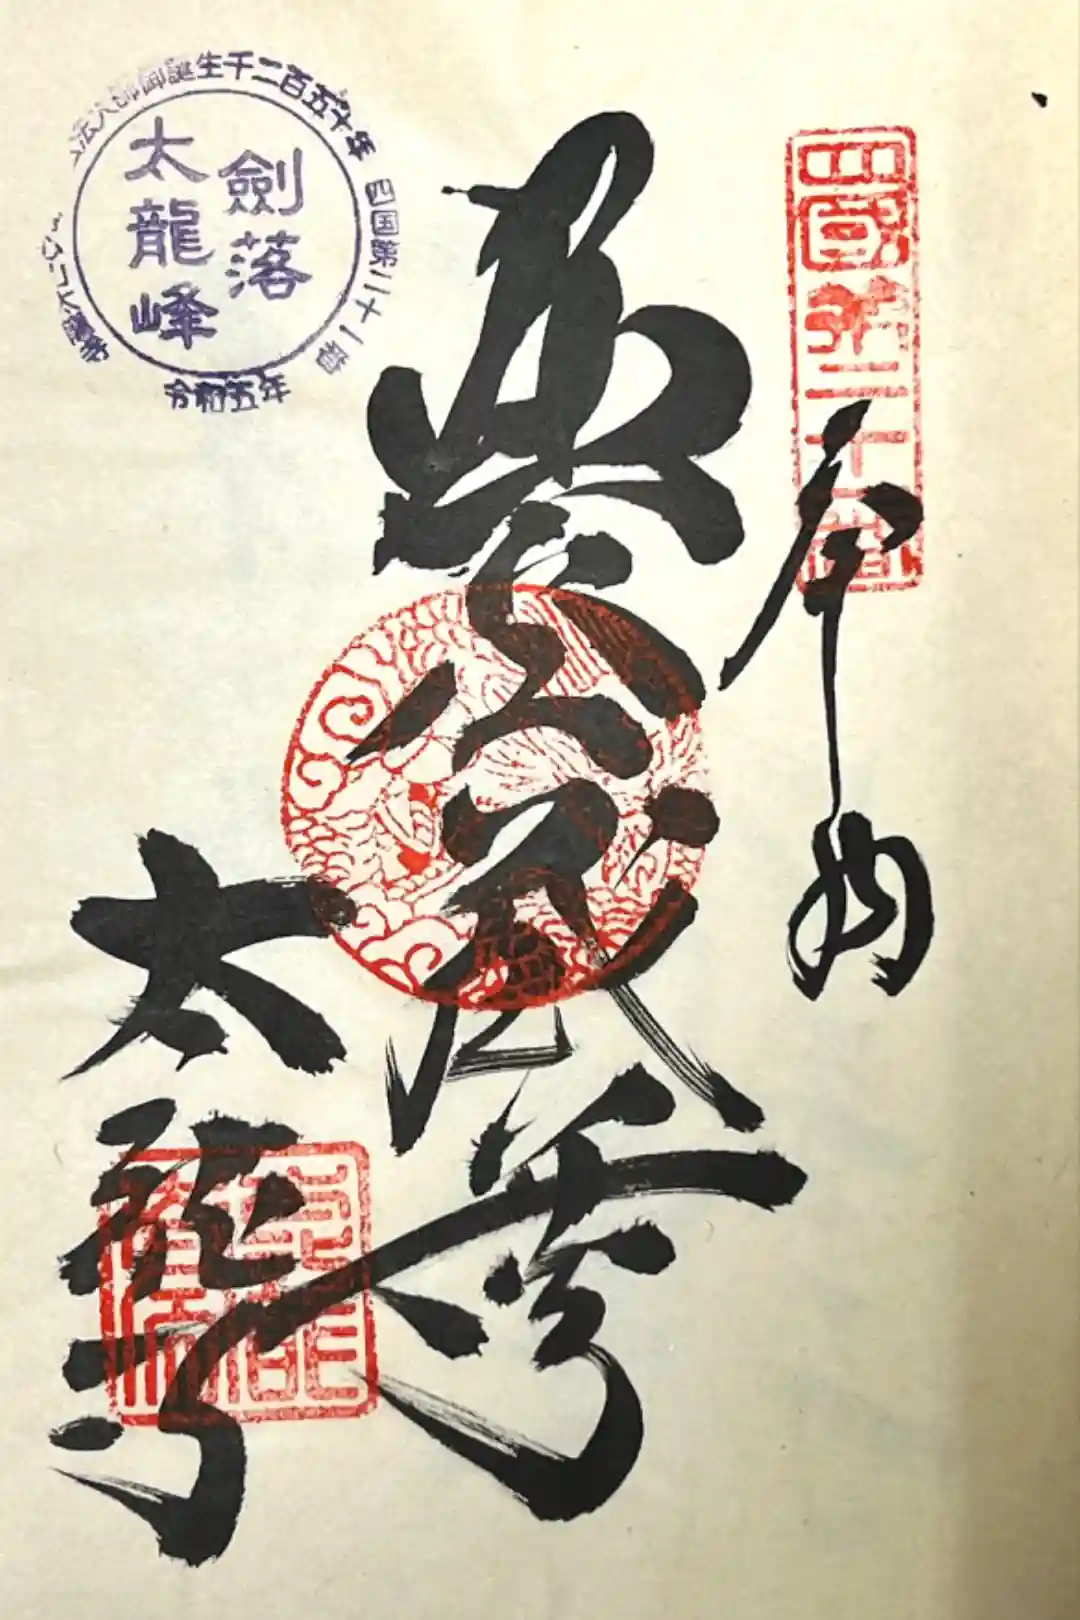 四國第二十一番
奉納
虚空蔵
太龍寺
弘法大師御誕生千二百五十年
四国第二十一番
劍落
太龍峰
令和五年